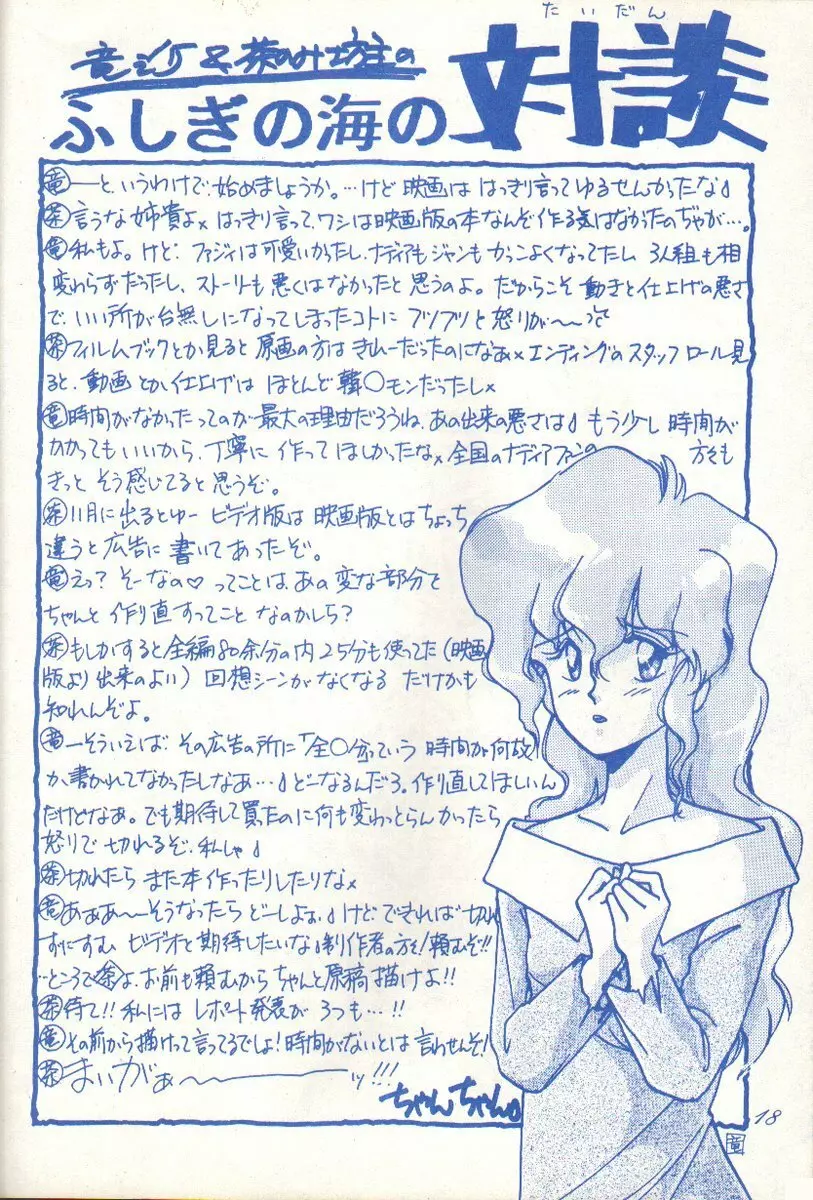 たいだん
竜 & 茶のみ坊主の
ふしぎの海の対談
竜―と、いうわけで、始めましょうか。…けど映画は はっきり言ってゆるせんかったな♪
茶言うな姉貴よ〟はっきり言って、ワシは映画版の本なんぞ作る気はなかったのぢゃが…。
竜私もよ。けど、ファジィは可愛いかったし、ナディアもジャンもかっこよくなってたし、3人組も相
変わらずだったし、ストーリーも悪くはなかったと思うのよ。だからこそ動きと仕上げの悪さ
で、いい所が台無しになってしまったコトにブツブツと怒りが〜〜
茶フィルムブックとか見ると原画の方はきれーだったのになぁ〟エンディングのスタッフロール見
ると、動画とか仕上げはほとんど韓○モンだったし〟
竜時間がなかったってのが最大の理由だろうね、あの出来の悪さは♪もう少し時間が
かかってもいいから、丁寧に作ってほしかったな〟全国のナディアファンの 方々も
きっとそう感じてると思うぞ。
茶11月に出るとゆービデオ版は映画版とはちょっち
違うと広告に書いてあったぞ。
竜えっ?そーなの♡ってことは、あの変な部分を
ちゃんと作り直すってことなのかしら?
茶もしかすると全編80余分の内25分も使ってた(映画
版より出来のよい)回想シーンがなくなるだけかも
知れんぞよ。
竜―そういえば、その広告の所に「全○分っていう時間が何故
か、書かれてなかったしなぁ…♪どーなるんだろ。作り直してほしいん
だけどなぁ。でも期待して買ったのに何も変わっとらんかったら
怒りで切れるぞ、私しゃ♪
茶切れたらまた本作ったりしたりな〟
竜あああ〜〜そうなったらどーしよぉ♪けど、できれば切れ
ずにすむビデオを期待したいな♪制作者の方々!頼むぞ!!
…ところで茶よ、お前も頼むからちゃんと原稿描けよ!!
茶待て!!私にはレポート発表が3つも…!!
竜その前から描けって言ってるでしょ!時間がないとは言わせんぞ!
茶まいがぁ〜〜〜ッ!!!
ちゃんちゃん♪
18
竜